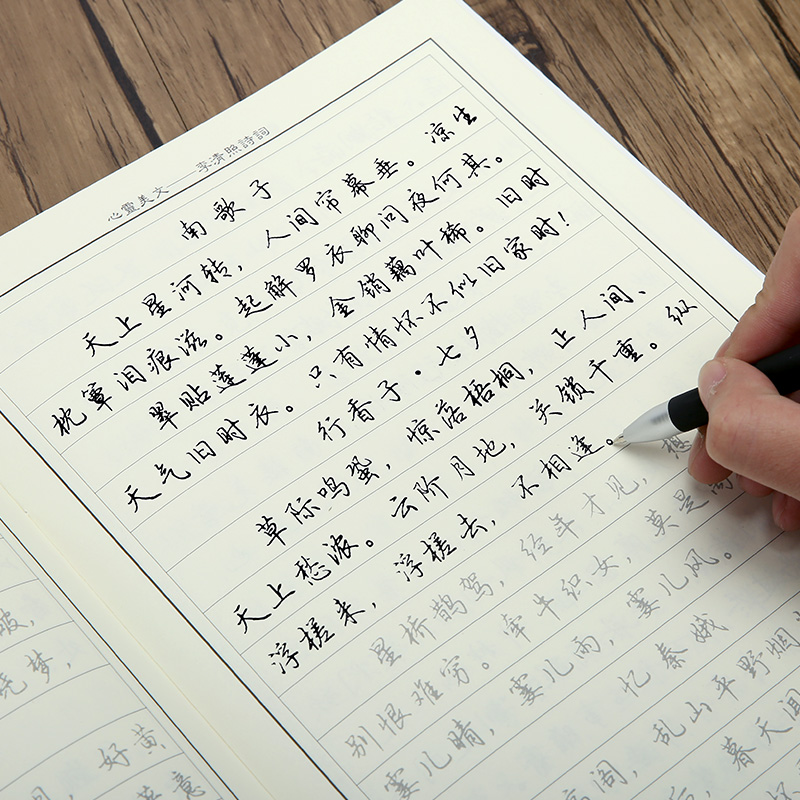 心靈美文——李清照詩詞
南歌子
天上星河转，人间帘幕垂。凉生
枕簟泪痕滋。起解罗衣聊问夜何其。
翠贴莲蓬小，金销藕叶稀。旧时
天气旧时衣。只有情怀不似旧家时！
行香子·七夕
草际鸣蛩，惊落梧桐，正人间、
天上愁浓。云阶月地，关锁千重。纵
浮槎来，浮槎去，不相逢。
星桥鹊驾，经年才见，想
别恨难穷。牵牛织女，莫是离
霎儿晴，霎儿雨，霎儿风。
忆秦娥
高阁，乱山平野烟
暮天闻
晓梦，
好黄